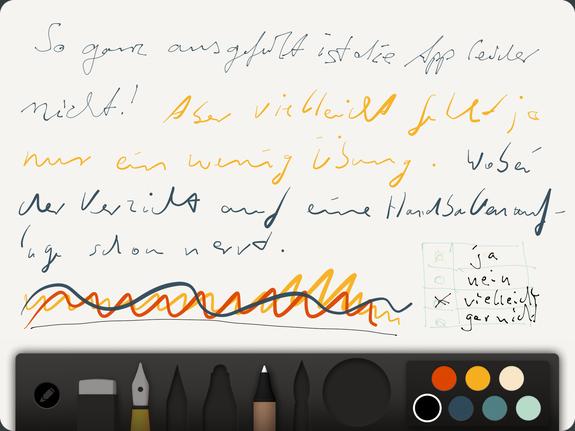 So ganz ausgefeilt ist die App leider
nicht! Aber vielleicht fehlt ja
nur ein wenig Übung. Wobei
der Verzicht auf eine Handballenauf-
lage schon nervt.
ja
nein
vielleicht
gar nicht